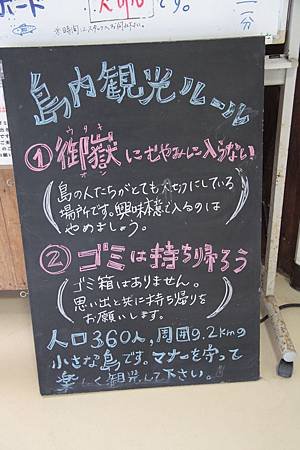 ボード
大切です。
一分
島内観光ルール
ウタキ
①御嶽にむやみに入らない!
オン
(島の人たちがとても大切にしている
場所です。興味本意で入るのは
やめましょう。)
②ゴミは持ち帰ろう
(ゴミ箱はありません。
思い出と共に持ち帰りを
お願いします。)
人口360人,周囲9.2kmの
小さな島です。マナーを守って
楽しく観光して下さい。